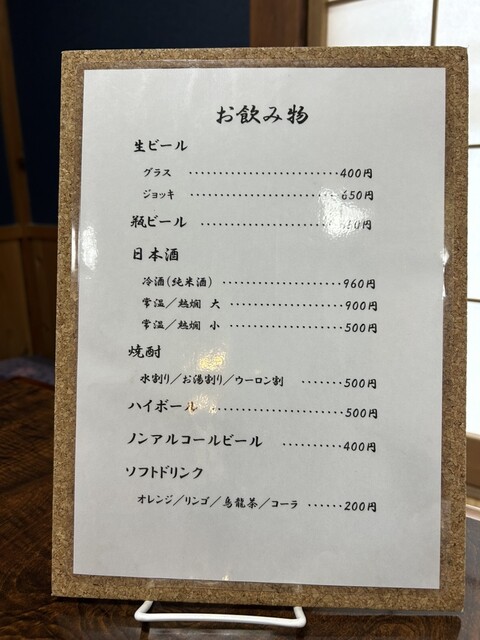 お飲み物
生ビール
グラス ……………………… 400円
ジョッキ ……………………… 650円
瓶ビール ………………… 円
日本酒
冷酒(純米酒) ……………… 960円
常温/熱燗 大 ……………… 900円
常温/熱燗 小 ……………… 500円
焼酎
水割り/お湯割り/ウーロン割 …… 500円
ハイボール ………………… 500円
ノンアルコールビール ……… 400円
ソフトドリンク
オレンジ/リンゴ/烏龍茶/コーラ …… 200円